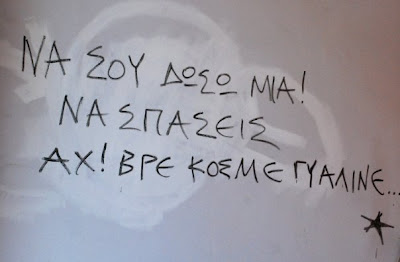 ΝΑ ΣΟΥ ΔΩΣΩ ΜΙΑ!
ΝΑ ΣΠΑΣΕΙΣ
ΑΧ! ΒΡΕ ΚΟΣΜΕ ΓΥΑΛΙΝΕ...